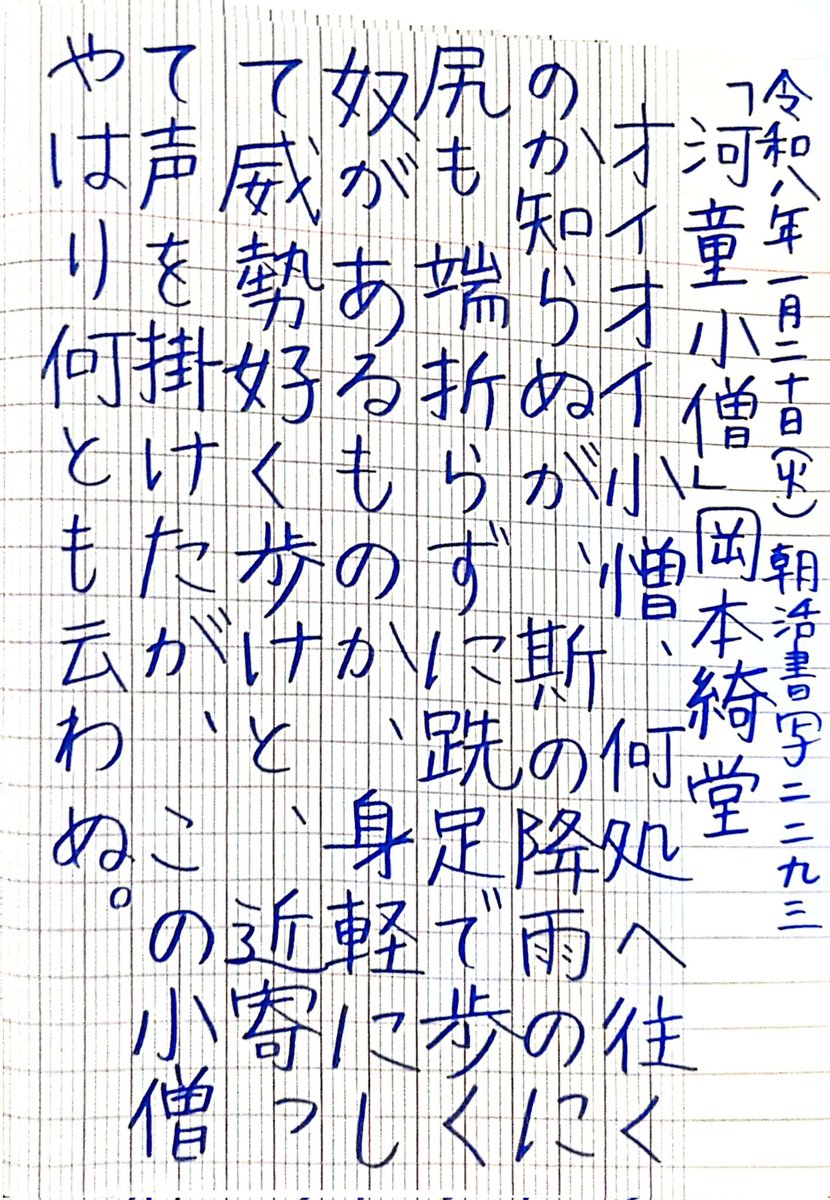 令和八年一月二十日(火)朝活書写二二九三
「河童小僧」岡本綺堂
オイオイ小憎、何処へ往く
のか知らぬが、斯の降雨のに
尻も端折らずに跣足で歩く
奴があるものか、身軽にし
て威勢好く歩けと、近寄っ
て声を掛けたが、この小僧
やはり何とも云わぬ。